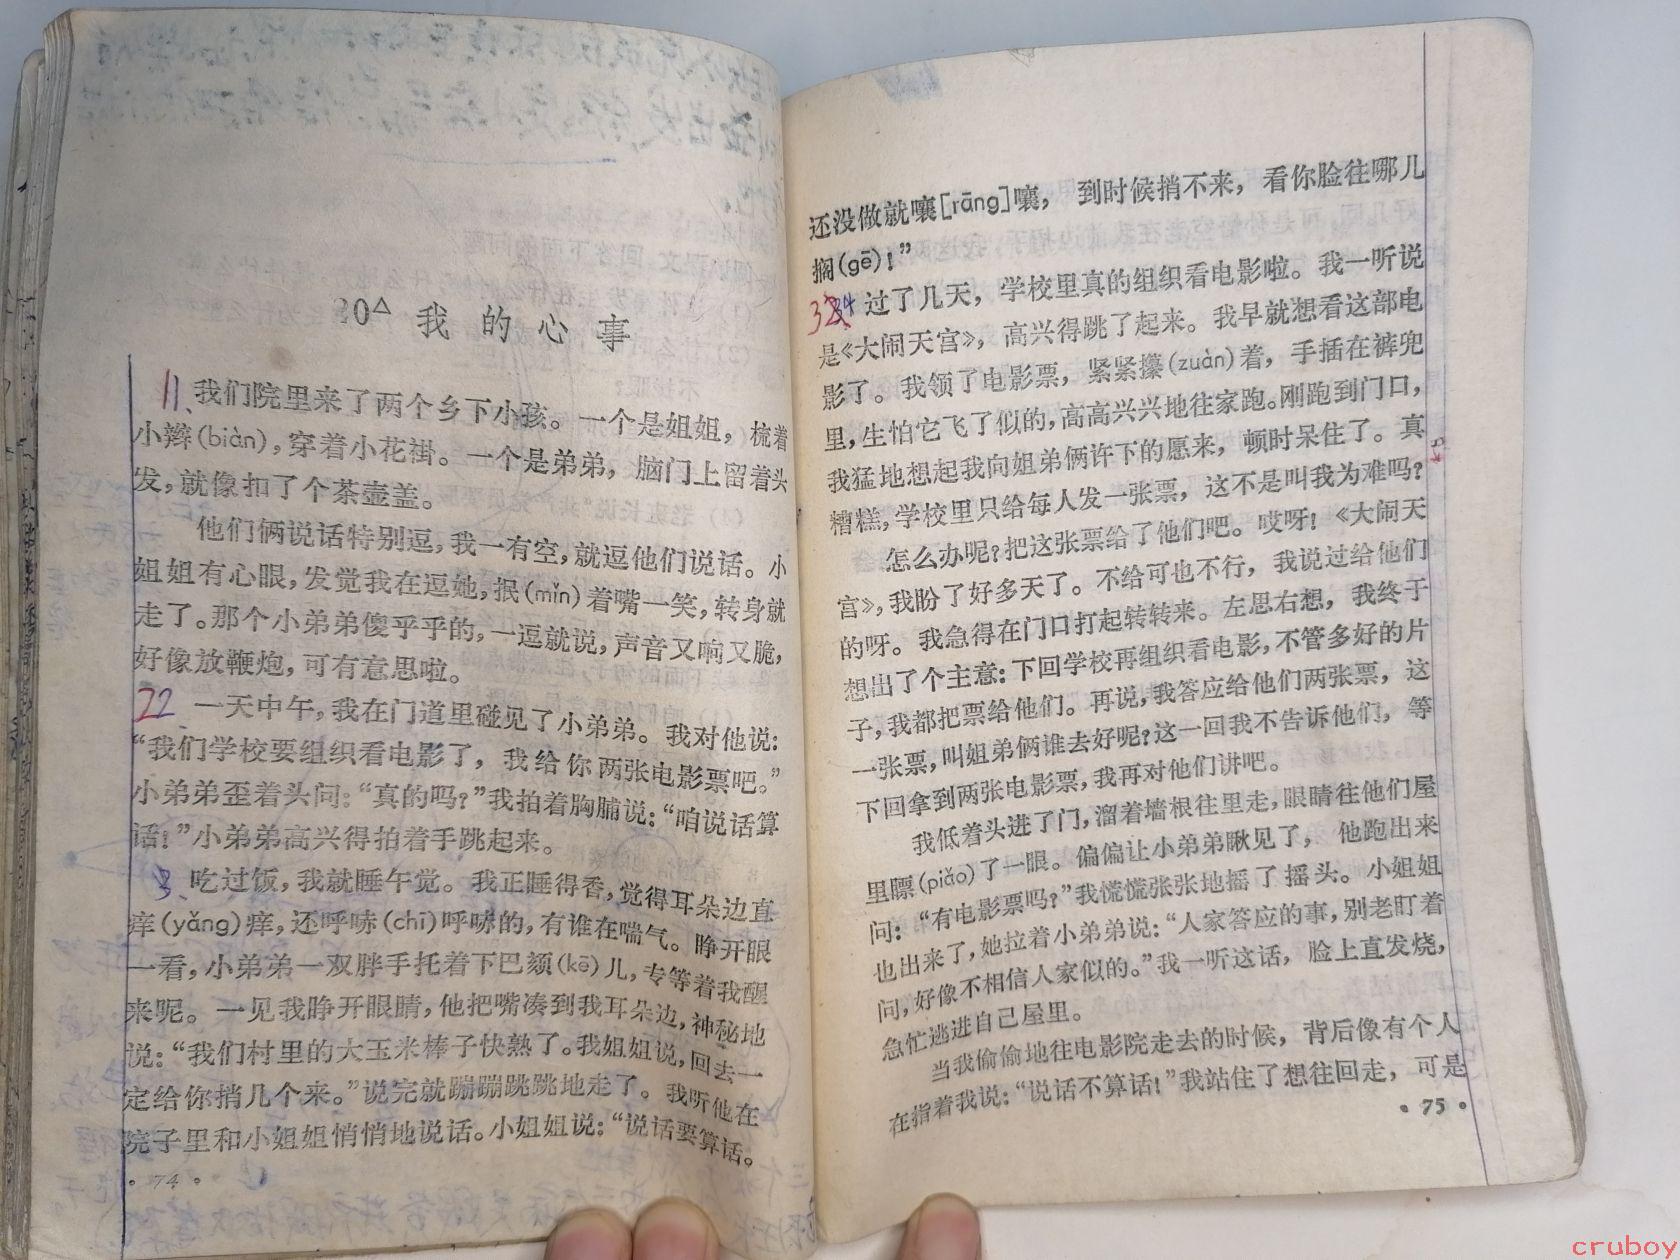 30△ 我的心事
11、我们院里来了两个乡下小孩。一个是姐姐，梳着
小辫(biàn)，穿着小花褂。一个是弟弟，脑门上留着头
发，就像扣了个茶壶盖。
他们俩说话特别逗，我一有空，就逗他们说话。小
姐姐有心眼，发觉我在逗她，抿(mǐn)着嘴一笑，转身就
走了。那个小弟弟傻乎乎的，一逗就说，声音又响又脆，
好像放鞭炮，可有意思啦。
22、一天中午，我在门道里碰见了小弟弟。我对他说：
“我们学校要组织看电影了，我给你两张电影票吧。”
小弟弟歪着头问：“真的吗？”我拍着胸脯说：“咱说话算
话！”小弟弟高兴得拍着手跳起来。
3、吃过饭，我就睡午觉。我正睡得香，觉得耳朵边直
痒(yǎng)痒，还呼哧(chī)呼哧的，有谁在喘气。睁开眼
一看，小弟弟一双胖手托着下巴颏(kē)儿，专等着我醒
来呢。一见我睁开眼睛，他把嘴凑到我耳朵边，神秘地
说：“我们村里的大玉米棒子快熟了。我姐姐说，回去一
定给你捎几个来。”说完就蹦蹦跳跳地走了。我听他在
院子里和小姐姐悄悄地说话。小姐姐说：“说话要算话。
· 74 ·
还没做就嚷[rāng]嚷，到时候捎不来，看你脸往哪儿
搁(gē)！”
过了几天，学校里真的组织看电影啦。我一听说
是《大闹天宫》，高兴得跳了起来。我早就想看这部电
影了。我领了电影票，紧紧攥(zuàn)着，手插在裤兜
里，生怕它飞了似的，高高兴兴地往家跑。刚跑到门口，
我猛地想起我向姐弟俩许下的愿来，顿时呆住了。真
糟糕，学校里只给每人发一张票，这不是叫我为难吗？
怎么办呢？把这张票给了他们吧。哎呀！《大闹天
宫》，我盼了好多天了。不给可也不行，我说过给他们
的呀。我急得在门口打起转转来。左思右想，我终于
想出了个主意：下回学校再组织看电影，不管多好的片
子，我都把票给他们。再说，我答应给他们两张票，这
一张票，叫姐弟俩谁去好呢？这一回我不告诉他们，等
下回拿到两张电影票，我再对他们讲吧。
我低着头进了门，溜着墙根往里走，眼睛往他们屋
里瞟(piǎo)了一眼。偏偏让小弟弟瞅见了，他跑出来
问：“有电影票吗？”我慌慌张张地摇了摇头。小姐姐
也出来了，她拉着小弟弟说：“人家答应的事，别老盯着
问，好像不相信人家似的。”我一听这话，脸上直发烧，
急忙逃进自己屋里。
当我偷偷地往电影院走去的时候，背后像有个人
在指着我说：“说话不算话！”我站住了想往回走，可是
· 75 ·
cruboy